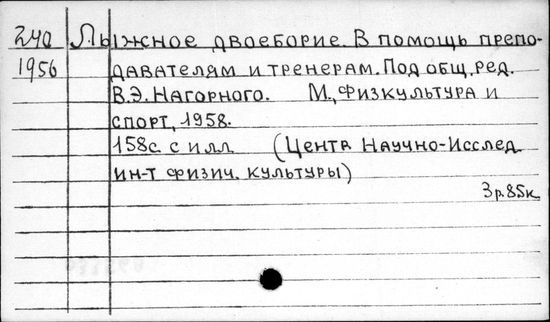 240 Лыжное двоеборие. В помощь препо-
1956 давателям и тренерам. Под общ. ред.
В.Э. Нагорного. М., Физкультура и
спорт, 1958.
158с. с илл (Центр Научно-Исслед.
ин-т физич. культуры)
3р.85к.